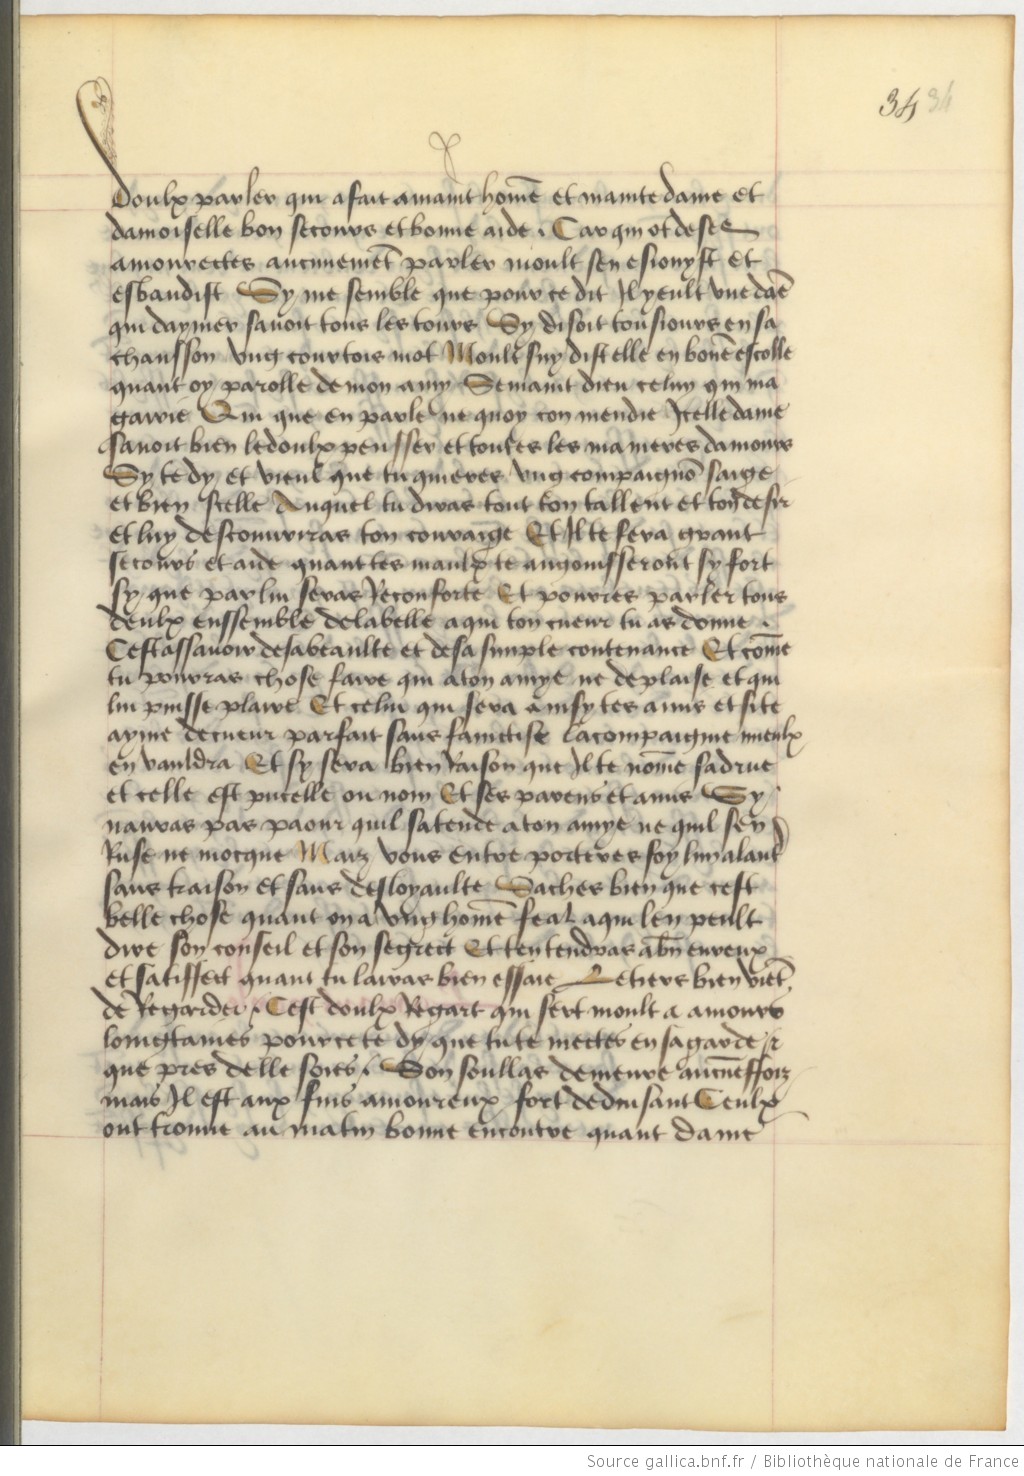 34 34
Doulx parler qui a fait a maint hom̄e et mainte dame et
damoiselle bon secours et bonne aide . Car qui ot de ses
amourectes aucunemēt parler moult sen esiouyst et
esbaudist Sy me semble que pour ce dit Il y eult vne dāe
qui daymer sauoit tous les tours Sy disoit tousiours en sa
chansson vng courtois mot Moult suy dist elle en bon̄e escolle
quant oy parolle de mon amy Se maint dieu celuy qui ma
garrie Qui que en parle ne quoy con mendie Icelle dame
sauoit bien le doulx pensser et toutes les manieres damours
Sy te dy et vieul que tu quieres vng compaignō saige
et bien scelle Auquel tu diras tout ton tallent et ton desir
et luy descouurras ton couraige Et Il te fera grant
secours et aide quant tes maulx te angoisseront sy fort
sy que par lui seras Reconforte Et pourres parler tous
deulx enssemble de la belle a qui ton cueur tu as donne .
Cest assauoir de sa beaulte et de sa simple contenance Et com̄e
tu pourras chose faire qui a ton amye ne deplaise et qui
lui puisse plaire Et celui qui sera ainsy tes amis et si te
ayme de cueur parfait sans faintise lacompaignie mieulx
en vauldra Et sy sera bien Raison que Il te nom̄e sa drue
et celle est pucelle ou nom Et ses parens et amis Sy
nauras pas paour quil satende a ton amye ne quil sen
Ruse ne mocque Maiz vous entre porteres foy lun a lautre
sans traison et sans desloyaulte Saches bien que cest
belle chose quant on a vng hom̄e feal a qui len peult
dire son conseil et son segrect Et ten tendras a bn̄ eureux
et satisfect quant tu lauras bien essaie Le tiers bien viēt
de Regarder . Cest doulx Regart qui sert moult a amours
loingtaines pour ce te dy que tu te mectes en sa garde
que pres delle soies . Son soullas demeure aucun̄effoiz
mais Il est aux fins amoureux fort deduisant Ceulx
ont trouue au matin bonne encontre quant dame
Source gallica.bnf.fr / Bibliothèque nationale de France